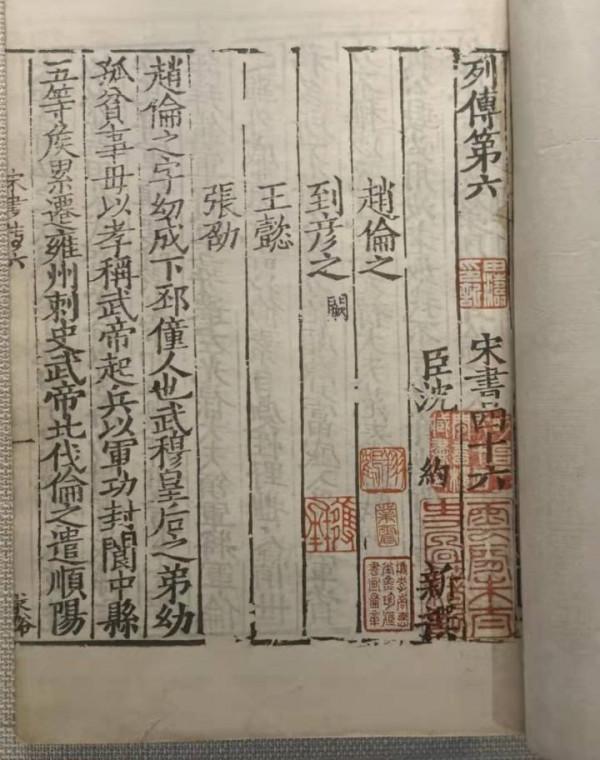 列傳第六 宋書四十六
臣沈 約 新撰
趙倫之
到彥之 闕
王懿
張劭
趙倫之字幼成下邳僮人也武穆皇后之弟幼
孤貧事母以孝稱武帝起兵以軍功封閬中縣
五等矦累遷雍州刺史武帝北伐倫之遣順陽